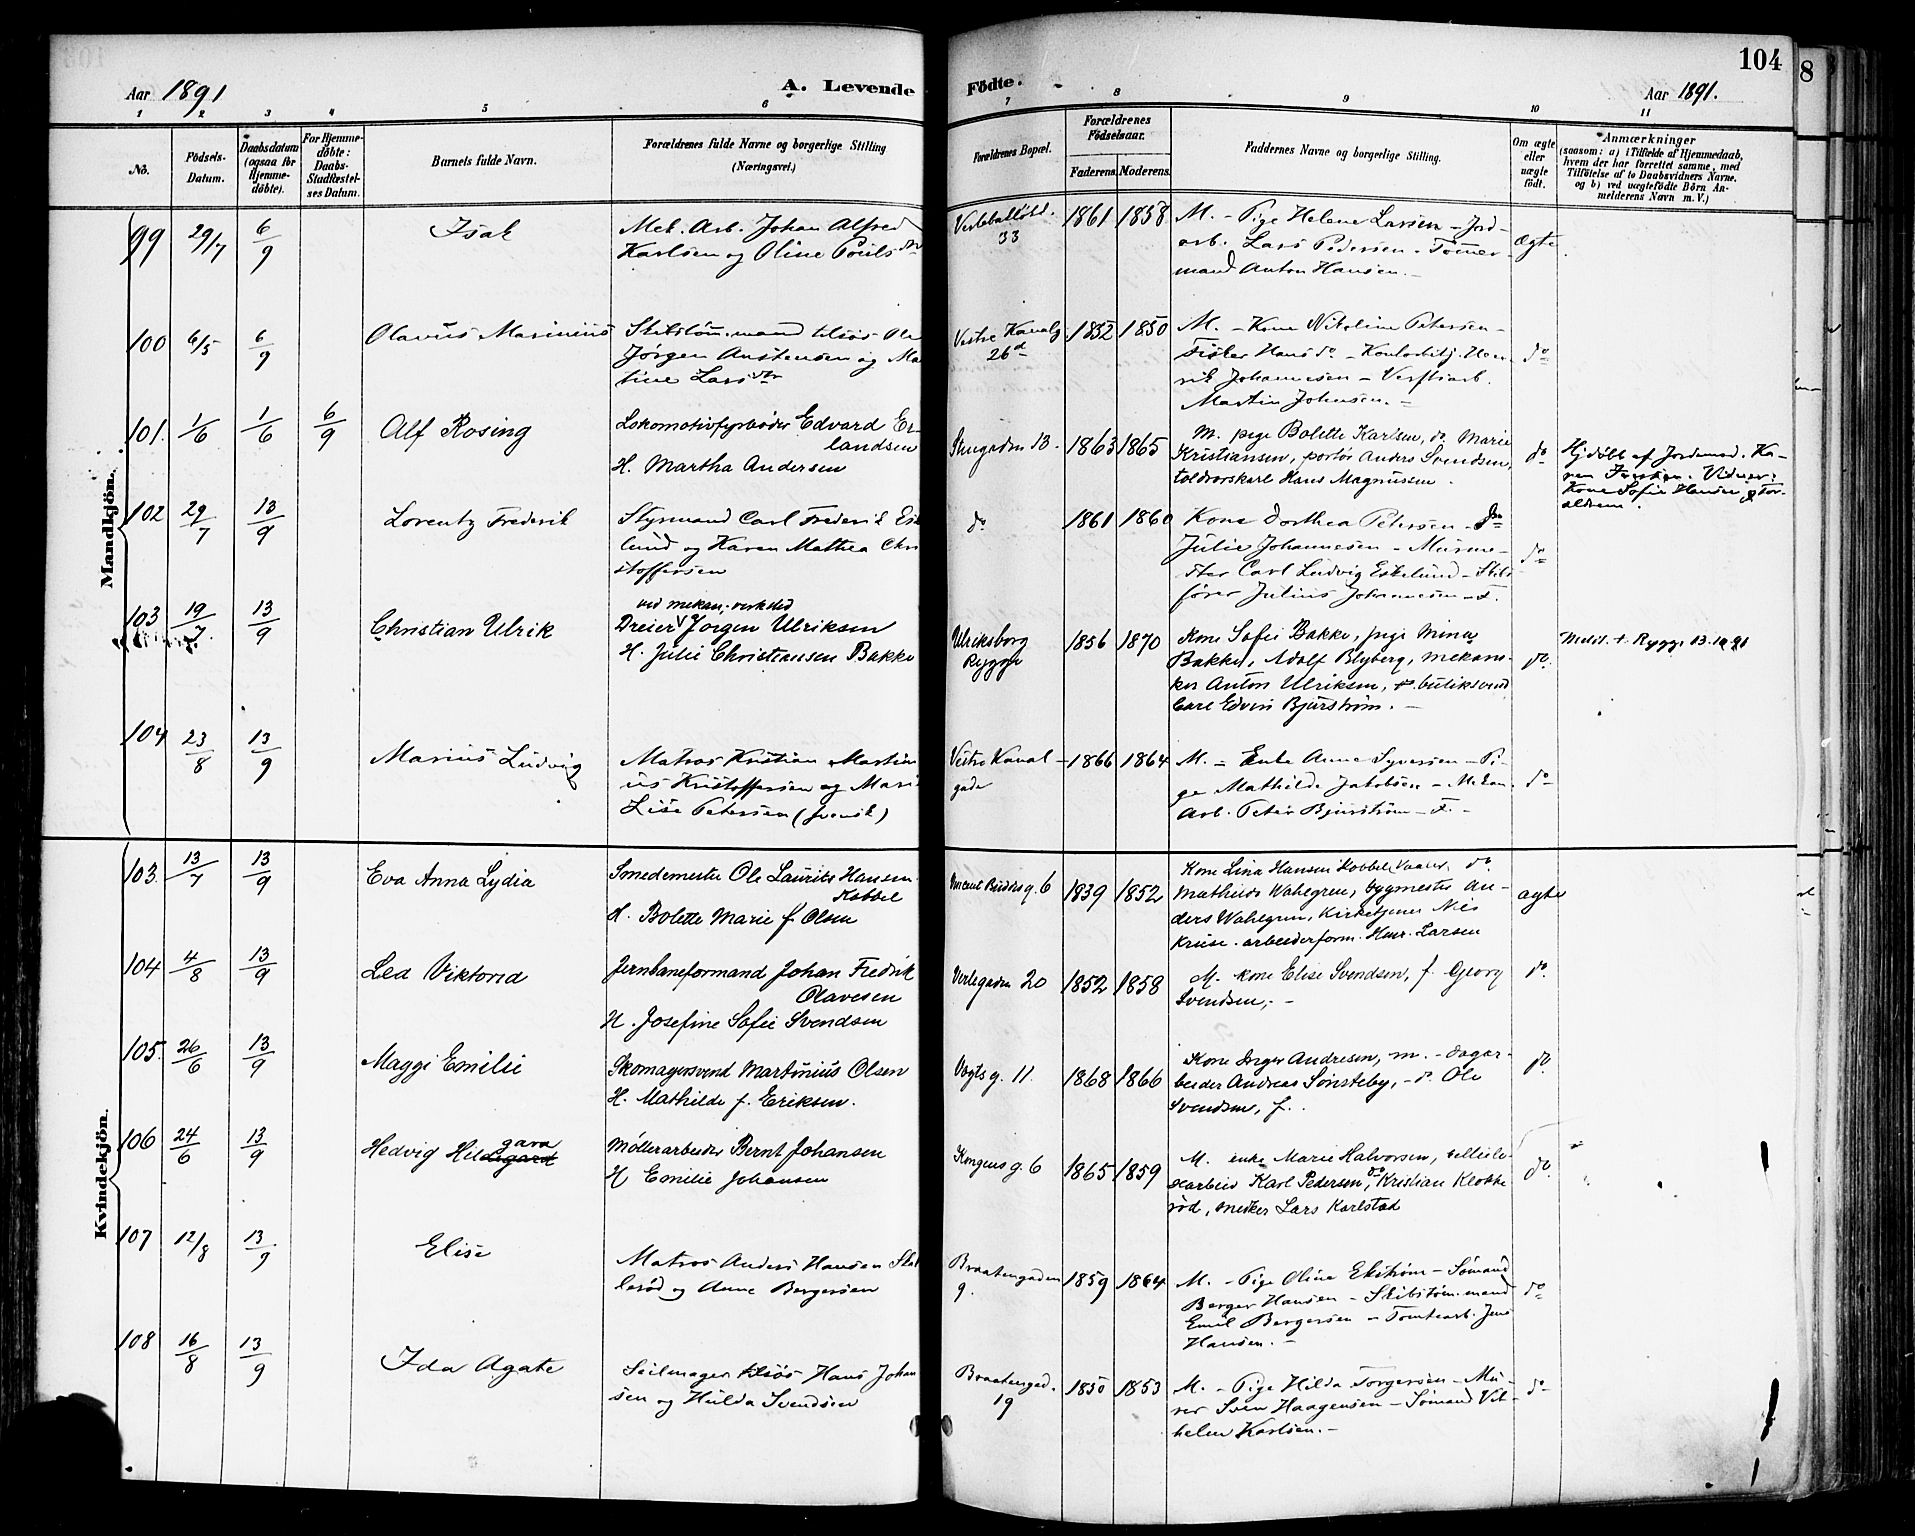 104
Aar 1891
A. Levende
Födte.
Aar 1891.
1 2 3 4 5 6 7 8 9 10 11
No.
Födsels-
Datum.
Daabsdatum
(ogsaa for
Hjemme-
döbte).
For Hjemme-
döbte:
Daabs-
Stadfæstel-
ses Datum.
Barnets fulde Navn.
Forældrenes fulde Navne og borgerlige Stilling
(Næringsvei.)
Forældrenes Bopæl.
Forældrenes
Födselsaar.
Faderens. Moderens.
Faddernes Navne og borgerlige Stilling.
Om ægte
eller
uægte
födt.
Anmærkninger
(saasom: a) i Tilfælde af Hjemmedaab,
hvem der har forrettet samme, med
Tilföielse af to Daabsvidners Navne.
og b) ved uægtefödte Börn An-
melderens Navn m. V.)
Mandkjön.
99 29/7 6/9 Isak
Mek. Arb. Johan Alfred
Karlsen og Oline Pouls dtr
33
1861 1858
M. - Pige Helene Larsen - Jord-
arb. Lars Pedersen - Tømmer-
mand Anton Hansen. -
Ægte
100 6/5 6/9 Olavus Marinius
Skibstøm.mand tilsøs Ole
Jørgen Austensen og Mar
tine Lars dtr
Vestre Kanalg.
26d
1852 1850
M. - Kone Nikoline Petersen -
Fisker Hans do - Kontorbetj. Hen-
rik Johannesen - Verftsarb.
Martin Johnsen. -
do
101. 1/6 1/6 6/9 Alf Rosing
Lokomotivfyrbøder Edvard Er-
landsen
H. Martha Andersen
13. 1863 1865
M. pige Bolette Karlsen, do Marie
Kristiansen, portør Anders Svendsen,
toldvorskarl Hans Magnussen.
do
Hjdøbt af Jordmod. Ka-
ren . Vidner:
Kone Sofie Hansen, og For-
ældrene.
102 29/7 13/9 Lorentz Frederik
Styrmand Carl Frederik Esk
lund og Karen Mathea Chri
stoffersen
do
1861 1860
Kone Dorthea Petersen - do
Julie Johannesen - Murme-
ster Carl Ludvig Eskelund - Skibs
fører Julius Johannesen - F.
do
103 19/7. 13/9 Christian Ulrik
ved mekan. verksted
Dreier Jørgen Ulriksen
H. Julie Christiansen Bakke
Ulriksborg
Rygge
1856 1870
Kone Sofie Bakke, pige Mina
Bakke, Adolf Blyberg, mekani-
ker Anton Ulriksen, butiksvend
Carl Edvin Bjurstrøm. -
do.
Meld. t. Rygge 13.10.91
104 23/8 13/9 Marius Ludvig
Matros Kristian Martin
us Kristoffersen og Mari
Lise Petersen (svensk)
Vestre Kanal-
gade
1866 1864
M. - Enke Anne Syversen - Pi-
ge Mathilde Jakobsen - Mekan.
Arb. Peter Bjurstrøm - F. -
do
Kvindekjön.
103. 13/7 13/9 Eva Anna Lydia
Smedemester Ole Laurits Hansen
Kobbel
H. Bolette Marie f. Olsen
6 1839 1852
Kone Lina Hansen Kobbel Vaaler, do
Mathilde Wahlgren, bygmester An-
ders Wahlgren, Kirketjener Nils
Kruse. arbeiderform. Henr. Larsen
ægte
104 4/8 13/9 Lea Viktoria
Jernbaneformand Johan Fredrik
Olavesen
H. Josefine Sofie Svendsen
Verlegaden 20
1852 1858
M. kone Elise Svendsen, f. Georg
Svendsen, -
do.
105. 26/6 13/9 Maggi Emilie
Skomagersvend Martinius Olsen
H. Mathilde f. Eriksen.
Vogts g. 11.
1868 1866
Kone Inger Andresen, m. - dagar-
beider Andreas Sønsteby, - do Ole
Svendsen, f.
do.
106 24/6 13/9 Hedvig Hildegara
Møllerarbeider Bernt Johansen
H Emilie Johansen
Kongens g. 6
1865 1859
M. enke Marie Halvorsen, cellulo-
searbeid. Karl Pedersen, do Kristian Klokke
rød, snekker Lars Karlstad
do.
107 12/8 13/9 Elise
Matros Anders Hansen Skal
lerød og Anne Bergersen
Braatengaden
9.
1859 1864
M. - Pige Oline Ekstrøm - Sømand
Berger Hansen - Skibstøm.mand
Emil Bergersen - Tomtearb. Jens
Hansen. -
do
108 16/8 13/9 Ida Agate
Seilmager tilsøs Hans Johan
sen og Hulda Svendsen
Braatengad.
19
1850 1853
M. - Pige Hilda Torgersen - Mu-
rer Sven Haagensen - Sømand Vil-
helm Karlsen. -
do
8